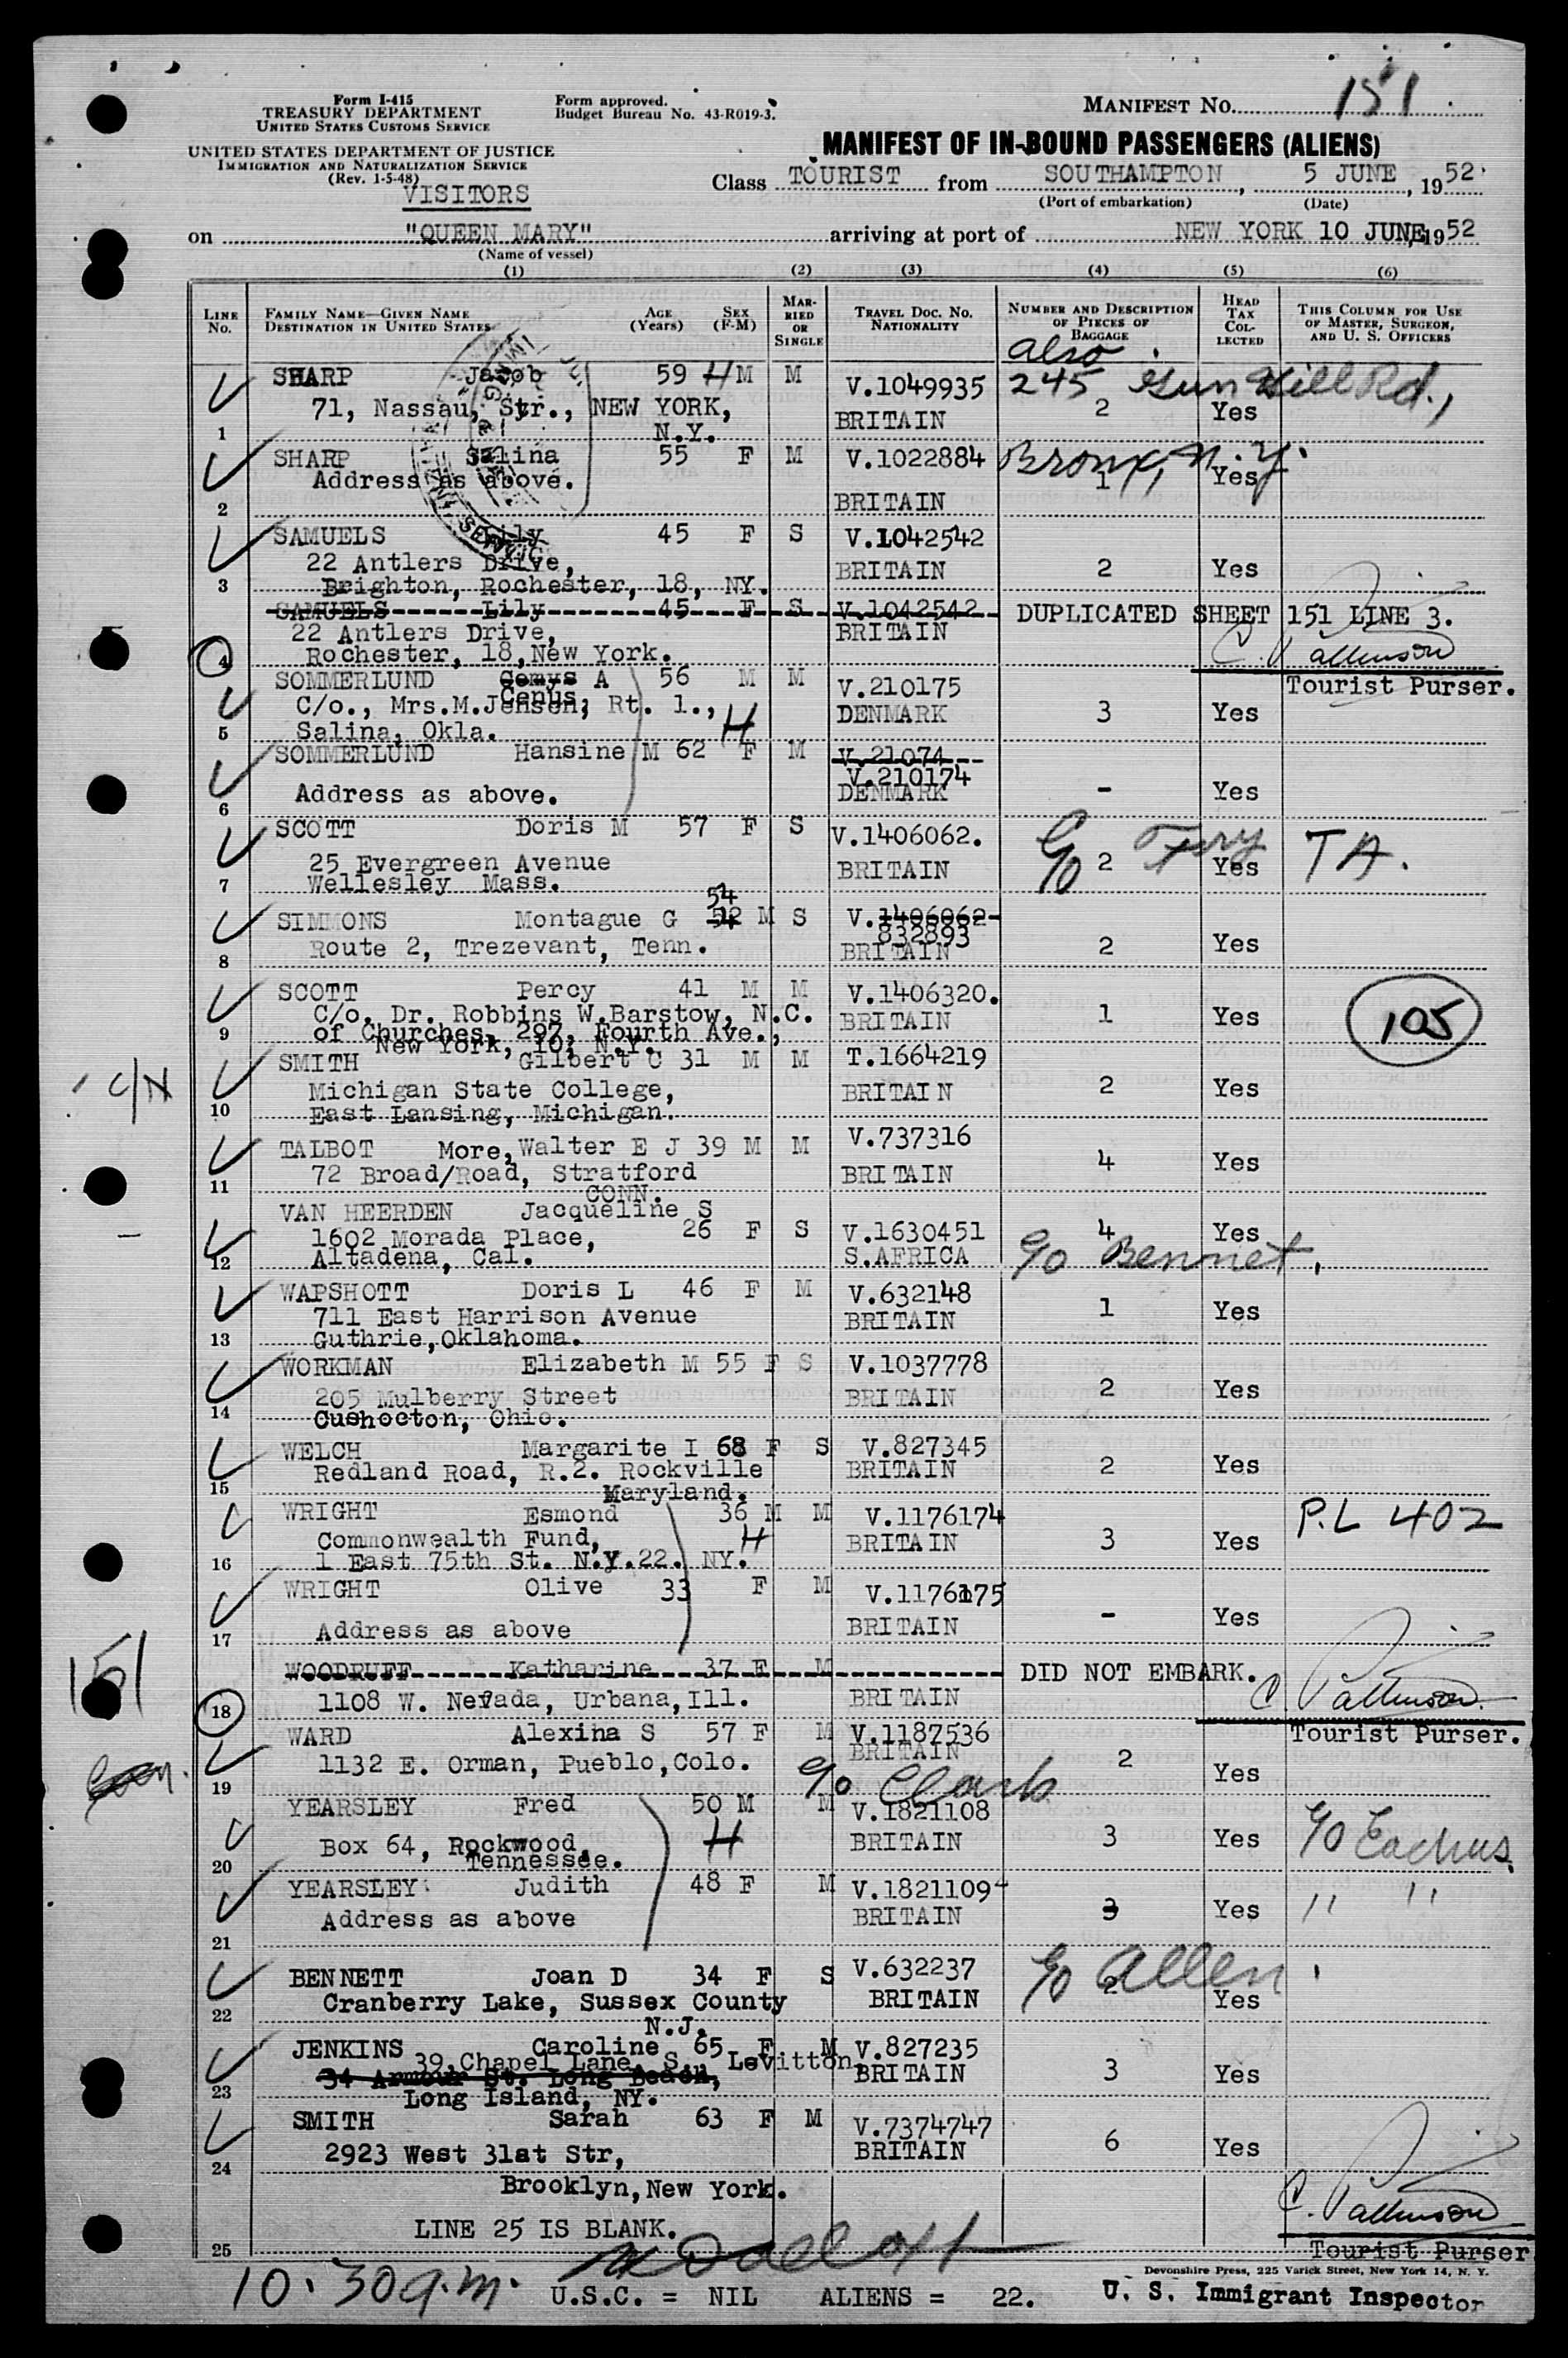 Form I-415
TREASURY DEPARTMENT
UNITED STATES CUSTOMS SERVICE
UNITED STATES DEPARTMENT OF JUSTICE
IMMIGRATION AND NATURALIZATION SERVICE
(Rev. 1-5-48)
VISITORS
Form approved.
Budget Bureau No. 43-R019-3.
MANIFEST No. 151
MANIFEST OF IN-BOUND PASSENGERS (ALIENS)
Class TOURIST from SOUTHAMPTON, 5 JUNE, 1952.
(Port of embarkation) (Date)
on "QUEEN MARY" arriving at port of NEW YORK 10 JUNE, 1952
(Name of vessel)
(1) (2) (3) (4) (5) (6)
LINE No. FAMILY NAME—GIVEN NAME DESTINATION IN UNITED STATES AGE (Years) SEX (F-M) MARRIED OR SINGLE TRAVEL DOC. No. NATIONALITY NUMBER AND DESCRIPTION OF PIECES OF BAGGAGE HEAD TAX COLLECTED THIS COLUMN FOR USE OF MASTER, SURGEON, AND U. S. OFFICERS
also
SHARP Jacob 59 H M M V.1049935 245 Gun Hill Rd.,
71, Nassau, Str., NEW YORK, BRITAIN 2 Yes
1 N.Y.
SHARP Salina 55 F M V.1022884 Bronx, N.Y.
Address as above. 1 Yes
2 BRITAIN
SAMUELS Lily 45 F S V.1042542
22 Antlers Drive, BRITAIN 2 Yes
3 Brighton, Rochester, 18, NY.
SAMUELS Lily 45 F S V.1042542 DUPLICATED SHEET 151 LINE 3.
22 Antlers Drive, BRITAIN
4 Rochester, 18, New York. C. Patkinson
Tourist Purser.
SOMMERLUND Gemys A 56 M M V.210175
Cenus
C/o., Mrs.M.Jensen, Rt. 1., DENMARK 3 Yes
5 Salina, Okla. H
SOMMERLUND Hansine M 62 F M V.21074
V.210174
6 Address as above. DENMARK - Yes
SCOTT Doris M 57 F S V.1406062. c/o Fry TA.
25 Evergreen Avenue BRITAIN 2 Yes
7 Wellesley Mass.
54
SIMMONS Montague G 52 M S V.1406062
832893
8 Route 2, Trezevant, Tenn. BRITAIN 2 Yes
SCOTT Percy 41 M M V.1406320.
C/o. Dr. Robbins W.Barstow, N.C. BRITAIN 1 Yes 105
9 of Churches, 297, Fourth Ave.,
New York, 10, N.Y.
C/N SMITH Gilbert C 31 M M T.1664219
Michigan State College, BRITAIN 2 Yes
10 East Lansing, Michigan.
TALBOT More, Walter E J 39 M M V.737316
72 Broad/Road, Stratford BRITAIN 4 Yes
11 CONN.
VAN HEERDEN Jacqueline S
1602 Morada Place, 26 F S V.1630451 4 Yes
12 Altadena, Cal. S.AFRICA c/o Bennet,
WAPSHOTT Doris L 46 F M V.632148
711 East Harrison Avenue BRITAIN 1 Yes
13 Guthrie, Oklahoma.
WORKMAN Elizabeth M 55 F S V.1037778
205 Mulberry Street BRITAIN 2 Yes
14 Cushocton, Ohio.
WELCH Margarite I 68 F S V.827345
Redland Road, R.2. Rockville BRITAIN 2 Yes
15 Maryland.
WRIGHT Esmond 36 M M V.1176174 P.L 402
Commonwealth Fund, H BRITAIN 3 Yes
16 1 East 75th St. N.Y.22. NY.
WRIGHT Olive 33 F M V.1176175
17 Address as above BRITAIN - Yes
151
WOODRUFF Katharine 37 F M DID NOT EMBARK.
18 1108 W. Nevada, Urbana, Ill. BRITAIN C. Patkinson
Tourist Purser.
WARD Alexina S 57 F M V.1187536
BRITAIN
19 1132 E. Orman, Pueblo, Colo. 2 Yes
c/o Clark
YEARSLEY Fred 50 M M V.1821108
Box 64, Rockwood, H BRITAIN 3 Yes c/o Eachus.
20 Tennessee.
YEARSLEY Judith 48 F M V.1821109
21 Address as above BRITAIN 3 Yes " "
BENNETT Joan D 34 F S V.632237 c/o Allen.
Cranberry Lake, Sussex County BRITAIN 2 Yes
22 N.J.
JENKINS Caroline 65 F M V.827235
39, Chapel Lane, S. Levitton,
34 Armour St. Long Beach, BRITAIN 3 Yes
23 Long Island, NY.
SMITH Sarah 63 F M V.7374747
2923 West 31st Str, BRITAIN 6 Yes
24
Brooklyn, New York.
C. Patkinson
25 LINE 25 IS BLANK.
Tourist Purser
Devonshire Press, 225 Varick Street, New York 14, N. Y.
10.30a.m. U.S.C. = NIL ALIENS = 22. U. S. Immigrant Inspector